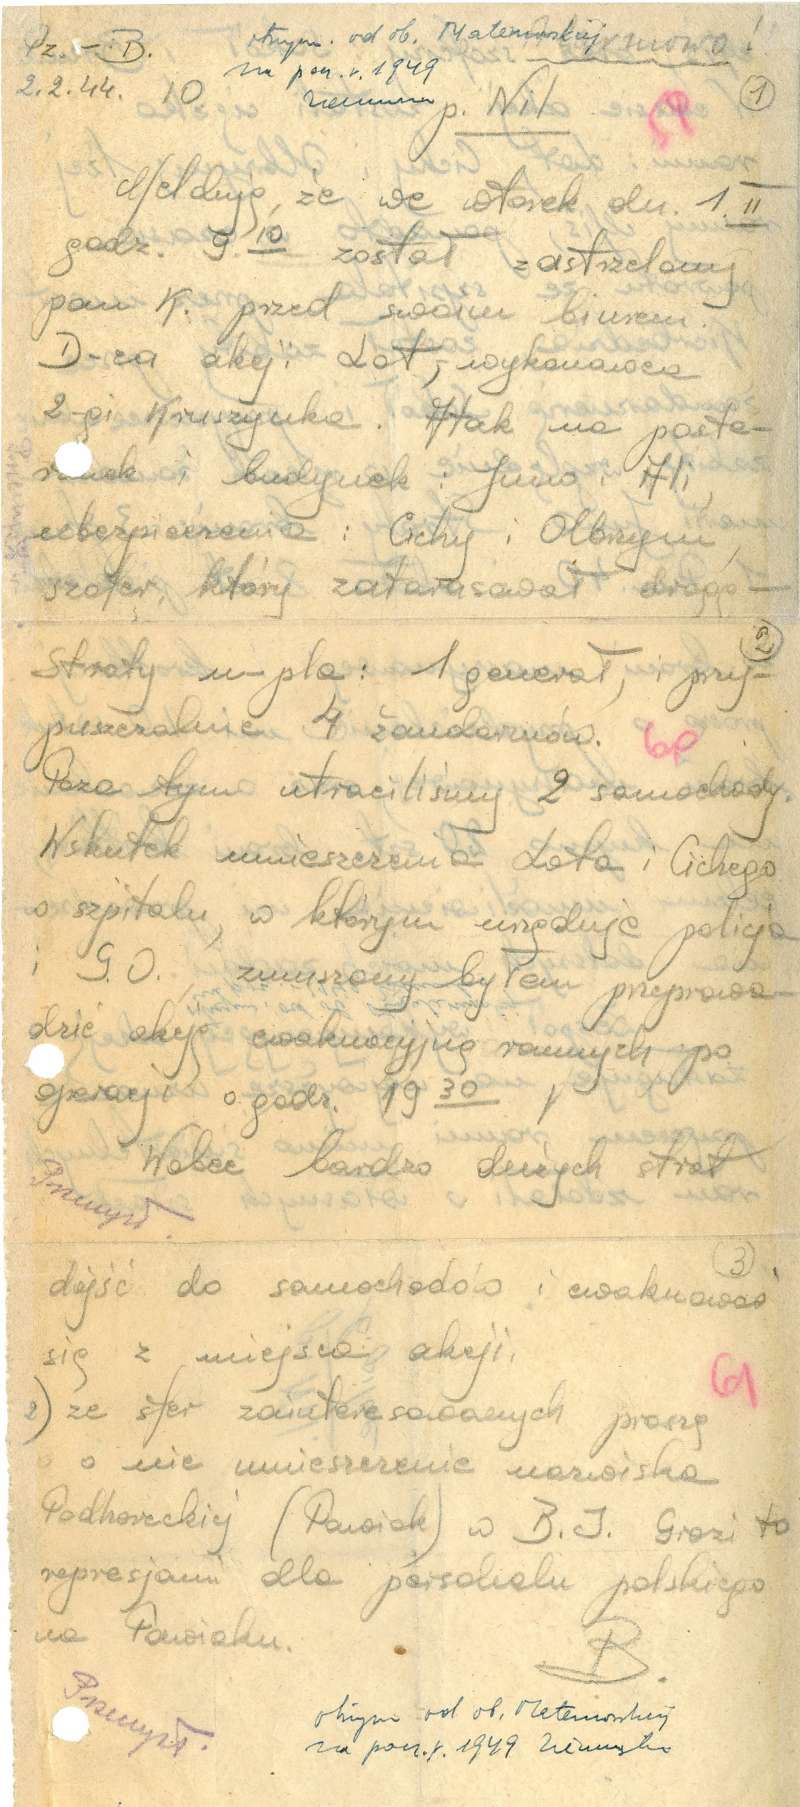 Pz. – B.
2.2.44. 10
otrzym. od ob. Maternowskiej
na pocz. r. 1949
p. Nil
1
59
Melduję, że we wtorek dn. 1.II
godz. 9.10 został zastrzelony
pan K. przed swoim biurem.
D-ca akcji Lot, wykonawca
2-gi Kruszynka. Atak na poste-
runek i budynek: Juno i Ali,
ubezpieczenia: Cichy i Olbrzym,
szofer, który zatarasował drogę –
2
Straty n-pla: 1 generał, i przy-
puszczalnie 4 żandarmów.
60
Poza tym utraciliśmy 2 samochody.
Wskutek umieszczenia Lota i Cichego
w szpitalu, w którym urzęduje policja
i G.O., zmuszony byłem przeprowa-
dzić akcję ewakuacyjną rannych po
operacji o godz. 19 30
Wobec bardzo dużych strat
Przemysł.
3
dojść do samochodów i ewakuować
się z miejsca akcji.
61
2) ze sfer zainteresowanych proszę
o nie umieszczenie nazwiska
Podhoreckiej (Pawiak) w B.I. Grozi to
represjami dla personelu polskiego
na Pawiaku.
B.
Przemysł.
otrzym od ob. Maternowskiej
na pocz. r. 1949